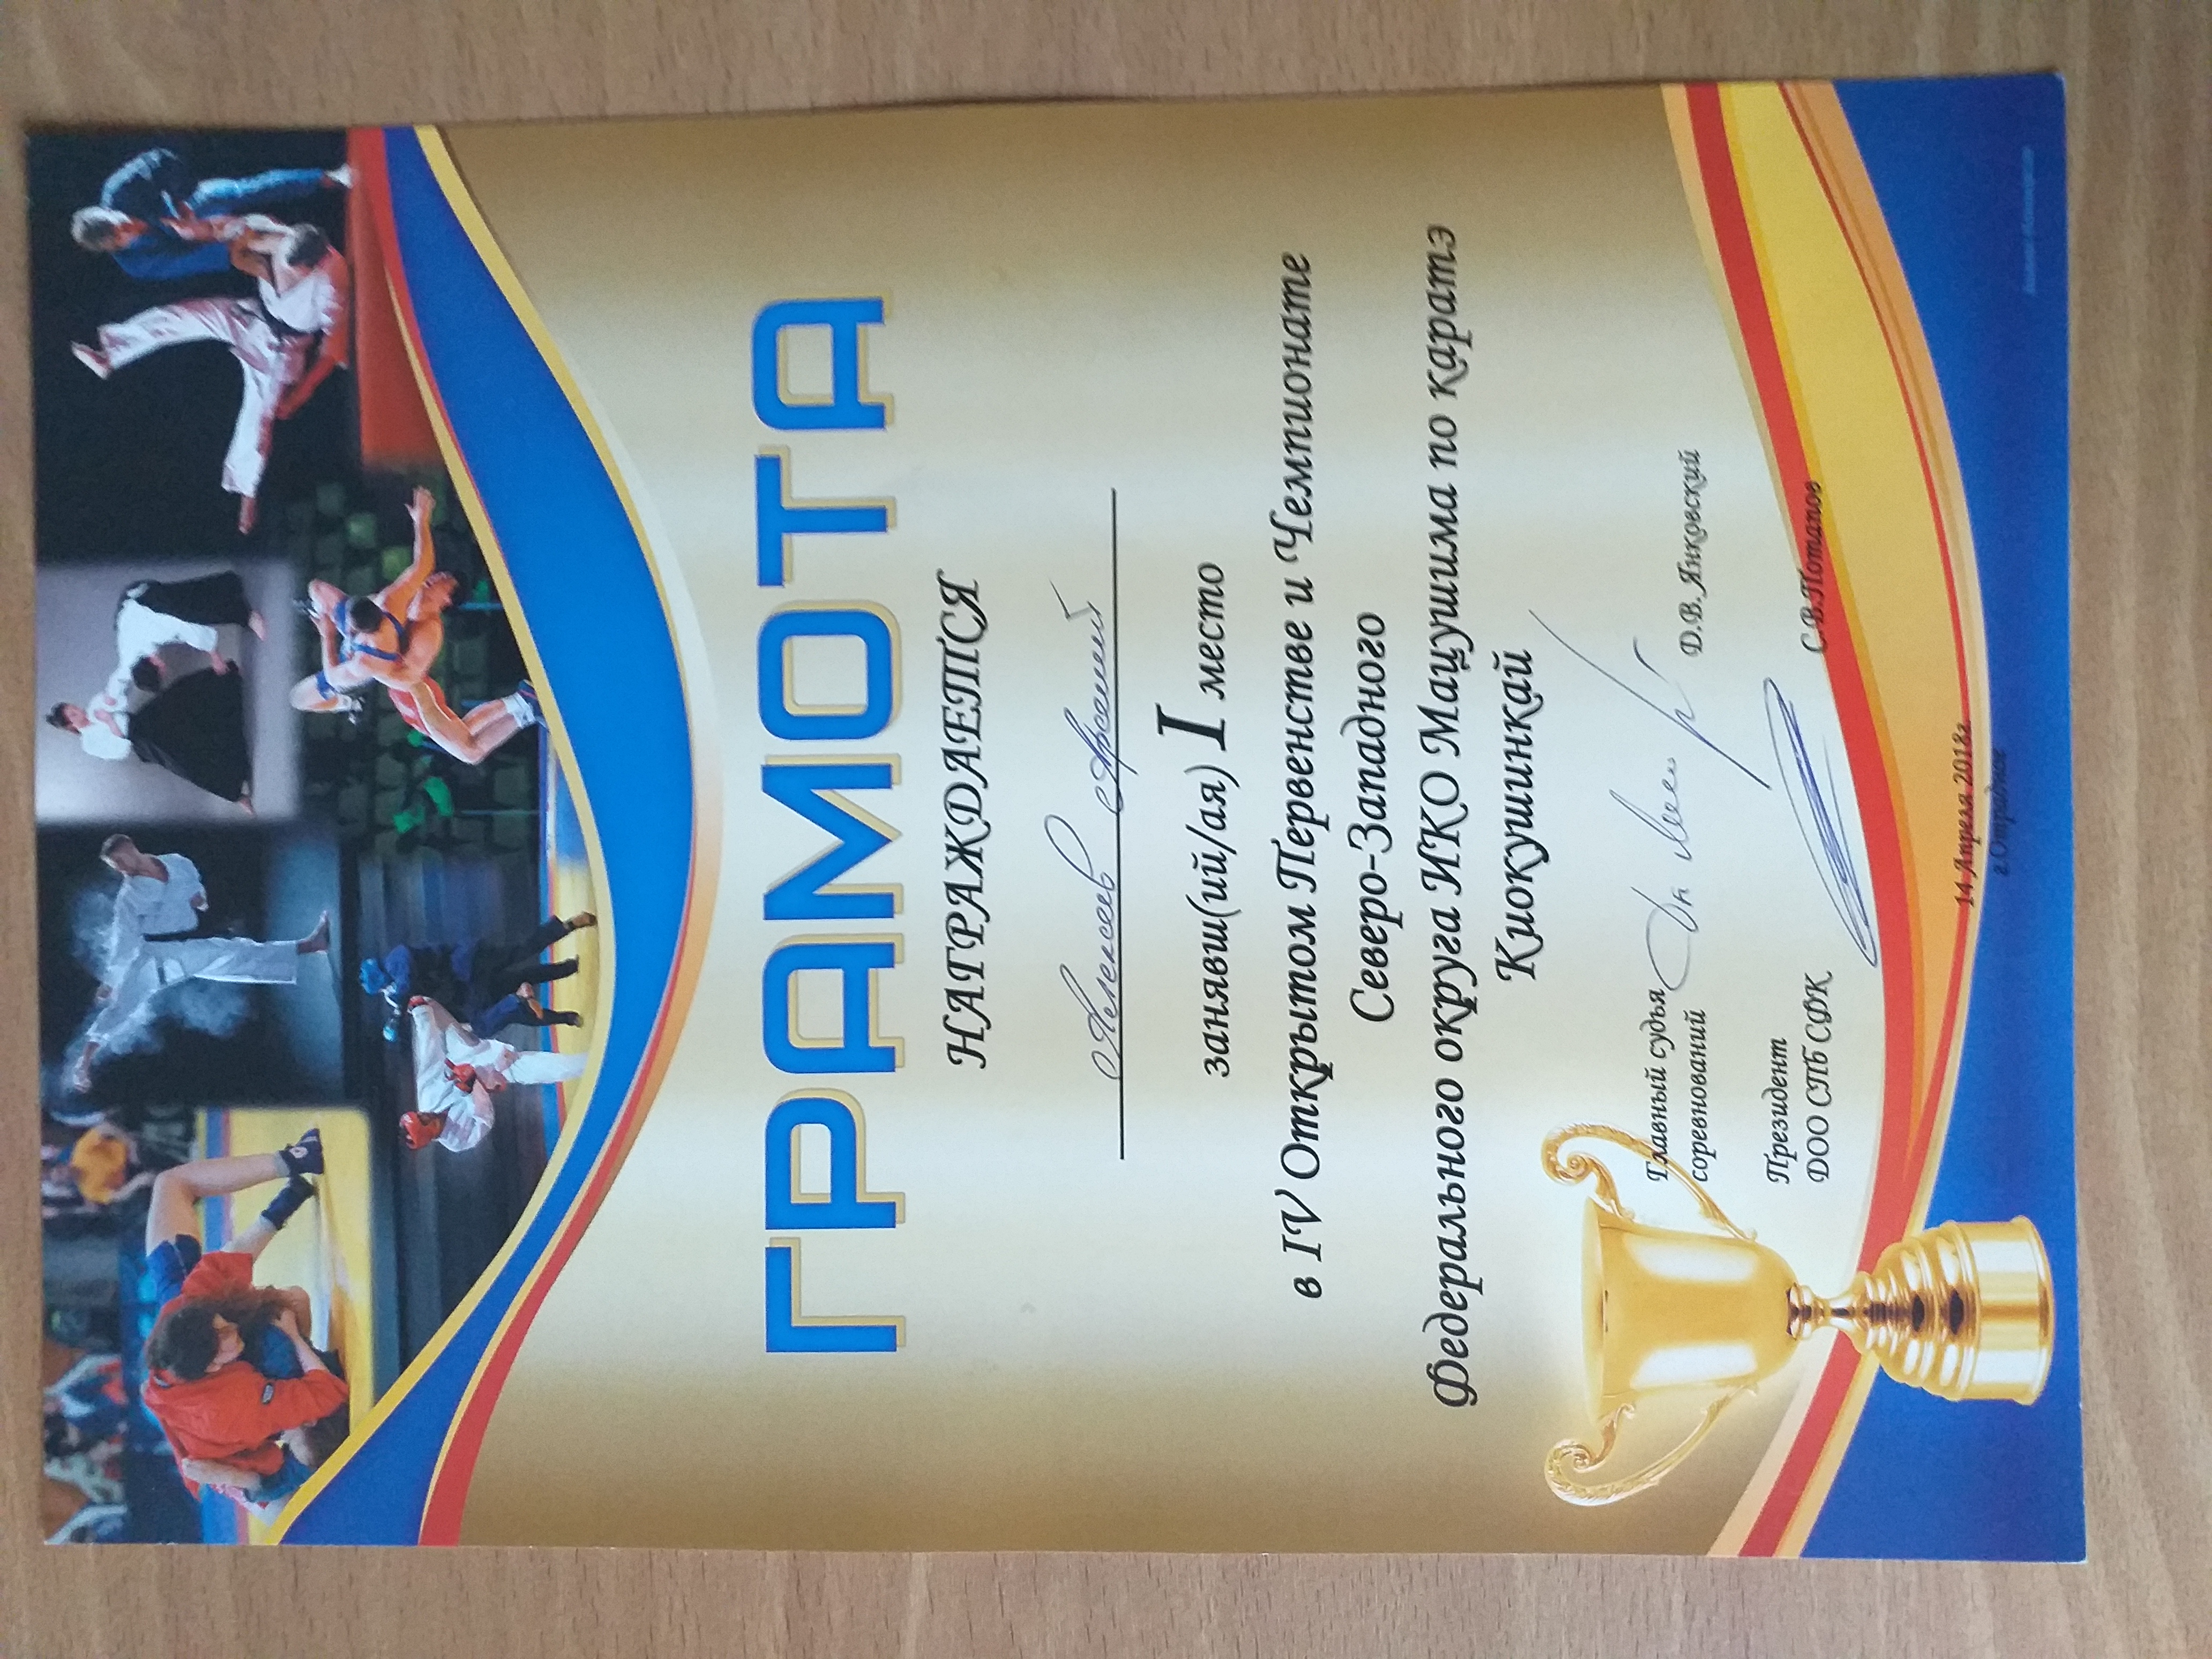 ГРАМОТА
НАГРАЖДАЕТСЯ
Алексеев Арсений
занявш(ий/ая) I место
в IV Открытом Первенстве и Чемпионате
Северо-Западного
Федерального округа ИКО Мацушима по каратэ
Киокушинкай
Главный судья
соревнований
Д.В. Янковский
Президент
ДОО СПб СФК
С.В.Потапов
14 Апреля 2018г.
г.Отрадное